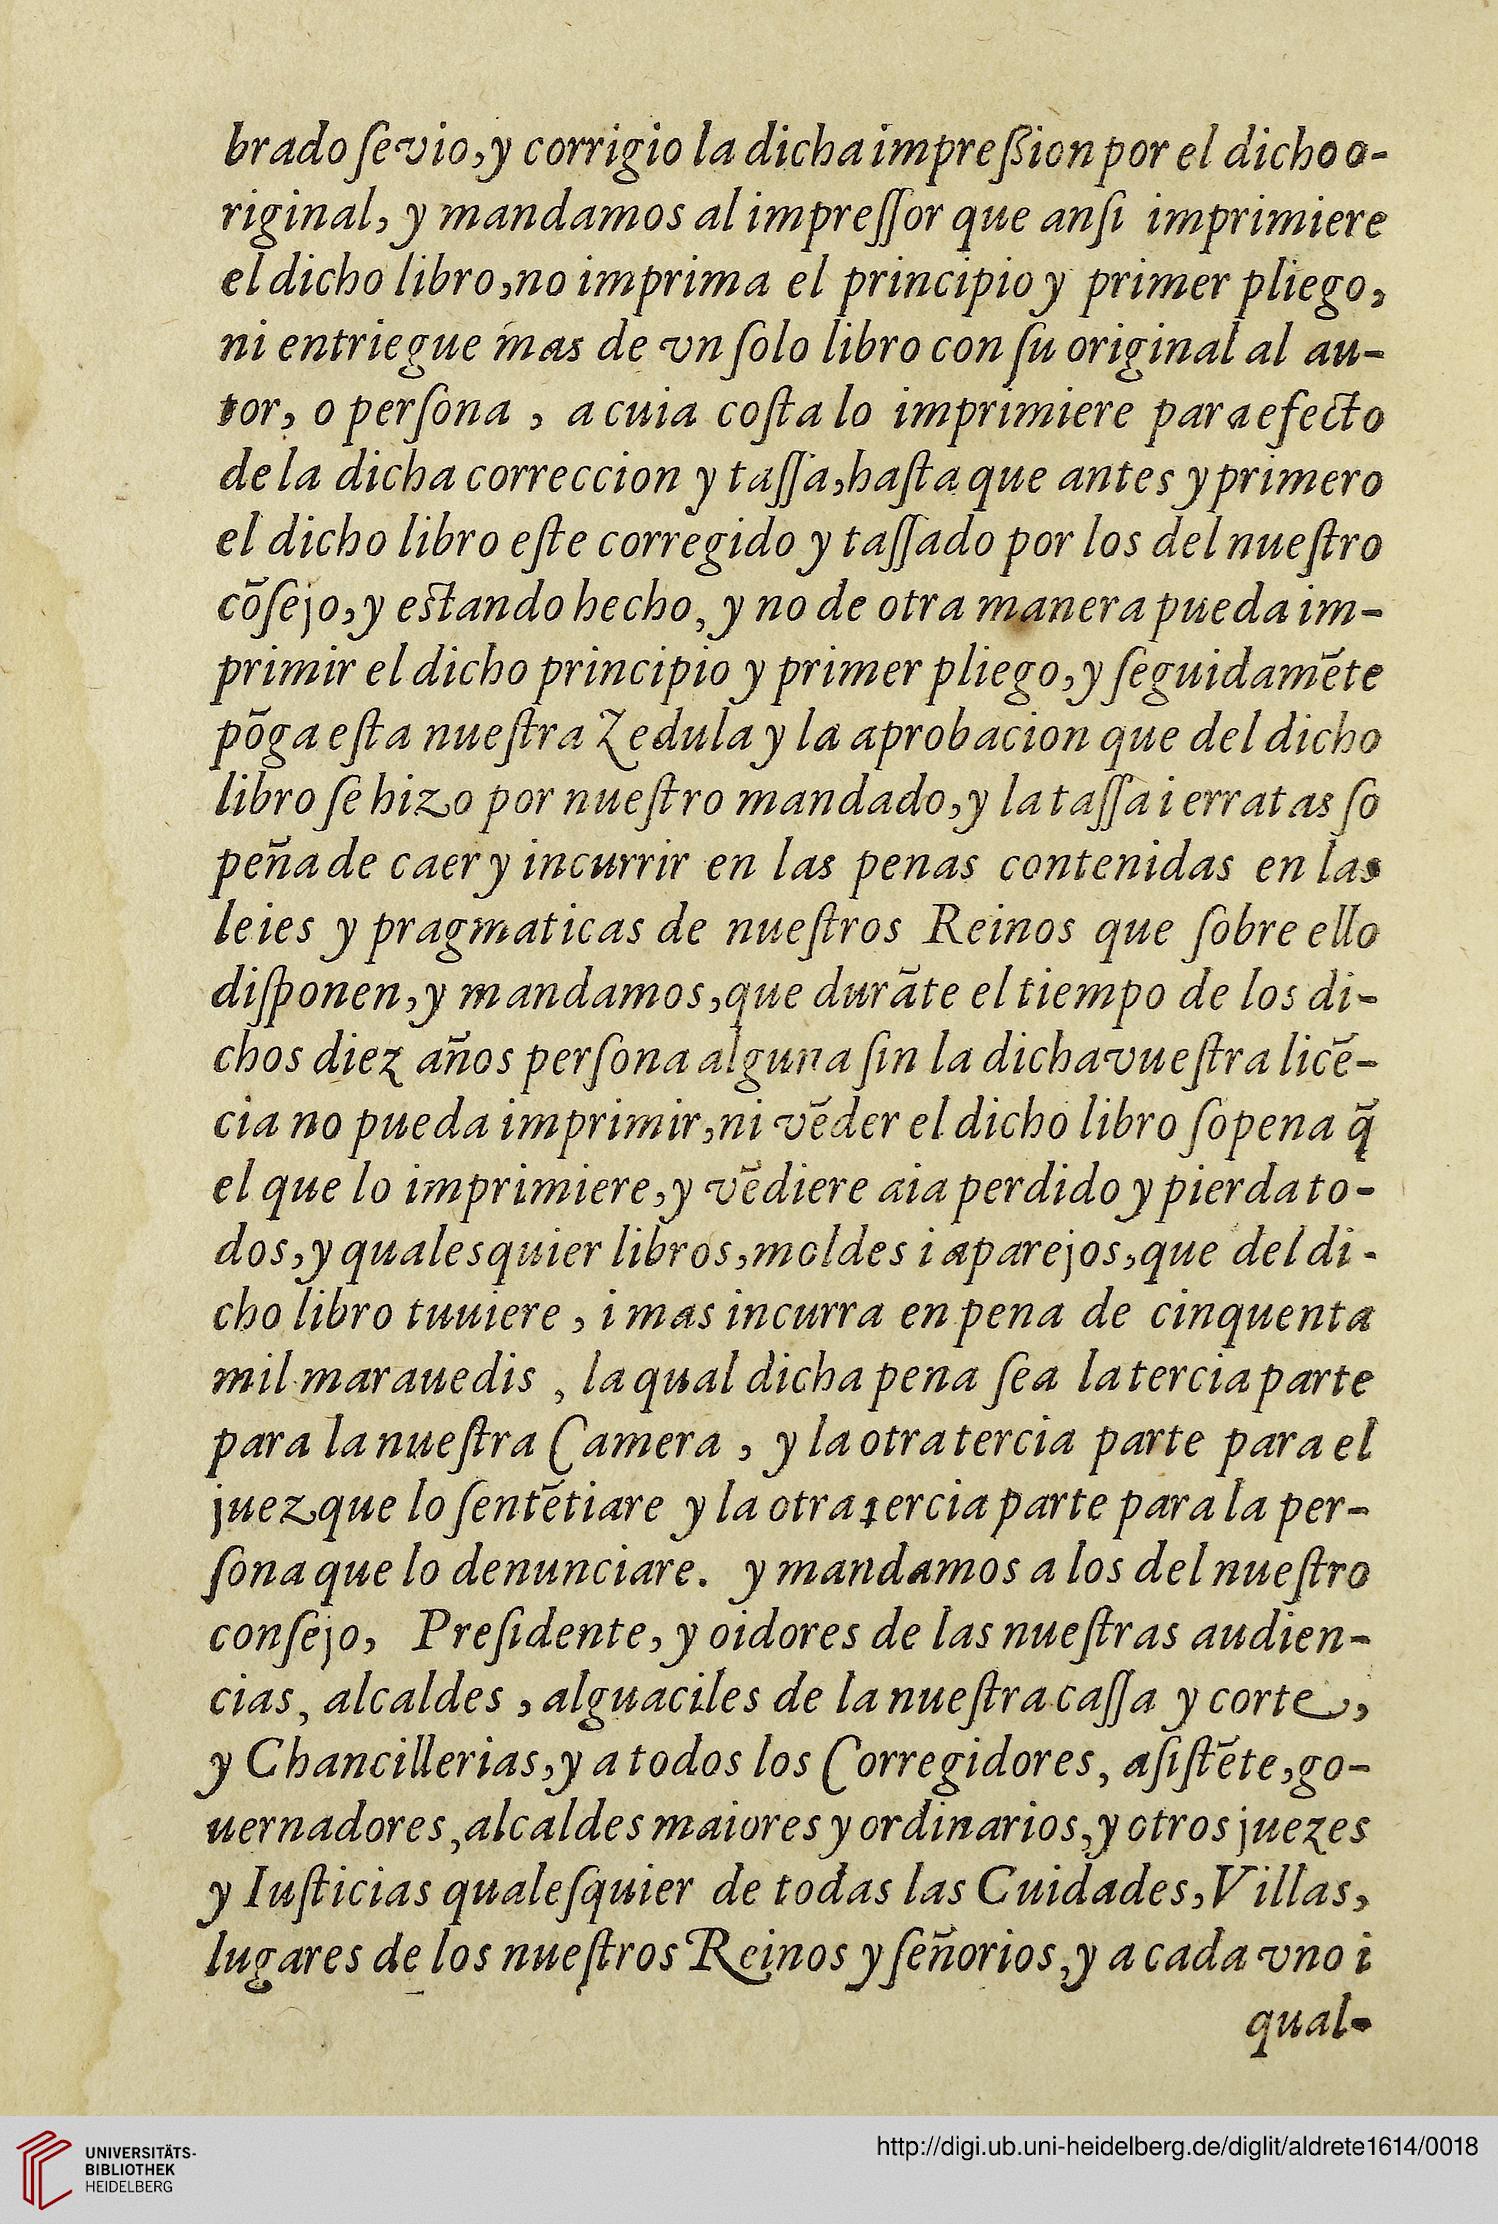 brado ſe vio, y corrigio la dicha impreſsion por el dicho o-
riginal, y mandamos al impreſſor que anſi imprimiere
el dicho libro, no imprima el principio y primer pliego,
ni entriegue mas de vn ſolo libro con ſu original al au-
tor, o perſona , a cuia coſta lo imprimiere para efecto
de la dicha correccion y taſſa, haſta que antes y primero
el dicho libro eſte corregido y taſſado por los del nueſtro
cõſejo, y estando hecho, y no de otra manera pueda im-
primir el dicho principio y primer pliego, y ſeguidamẽte
põga eſta nueſtra Zedula y la aprobacion que del dicho
libro ſe hizo por nueſtro mandado, y la taſſa i erratas ſo
peña de caer y incurrir en las penas contenidas en las
leies y pragmaticas de nueſtros Reinos que ſobre ello
diſponen, y mandamos, que durãte el tiempo de los di-
chos diez años perſona alguna ſin la dicha vueſtra licẽ-
cia no pueda imprimir, ni vẽder el dicho libro ſopena q̃
el que lo imprimiere, y vẽdiere aia perdido y pierda to-
dos, y qualesquier libros, moldes i aparejos, que del di-
cho libro tuuiere , i mas incurra en pena de cinquenta
mil marauedis , la qual dicha pena ſea la tercia parte
para la nueſtra Camera , y la otra tercia parte para el
juez que lo ſentẽtiare y la otra tercia parte para la per-
ſona que lo denunciare. y mandamos a los del nueſtro
conſejo, Preſidente, y oidores de las nueſtras audien-
cias, alcaldes , alguaciles de la nueſtra caſſa y corte,
y Chancillerias, y a todos los Corregidores, aſiſtẽte, go-
uernadores, alcaldes maiores y ordinarios, y otros juezes
y Iuſticias qualeſquier de todas las Cuidades, Villas,
lugares de los nueſtros Reinos y ſeñorios, y a cada vno i
qual-
UNIVERSITÄTS-
BIBLIOTHEK
HEIDELBERG
http://digi.ub.uni-heidelberg.de/diglit/aldrete1614/0018